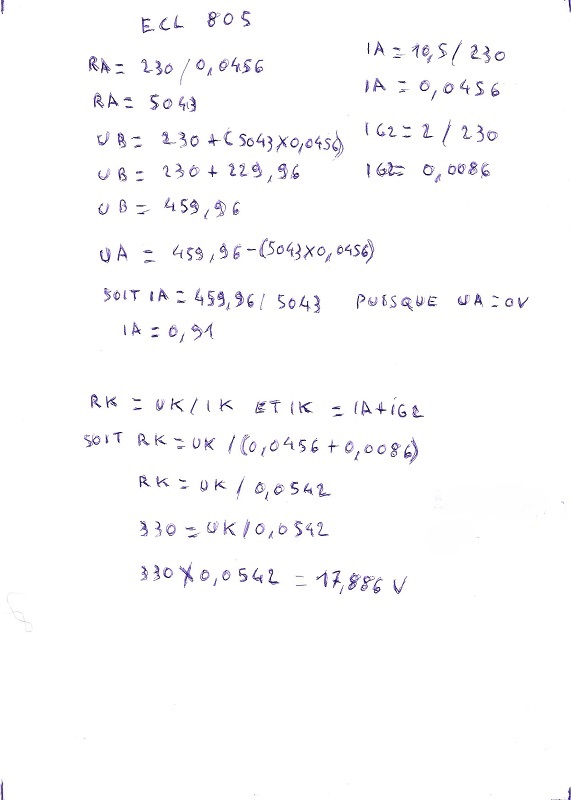 ECL 805
RA = 230 / 0,0456
RA = 5043
UB = 230 + (5043 X 0,0456)
UB = 230 + 229,96
UB = 459,96
IA = 10,5 / 230
IA = 0,0456
IG2 = 2 / 230
IG2 = 0,0086
UA = 459,96 - (5043 X 0,0456)
SOIT IA = 459,96 / 5043 PUISQUE UA = 0V
IA = 0,91
RK = UK / IK ET IK = IA + IG2
SOIT RK = UK / (0,0456 + 0,0086)
RK = UK / 0,0542
330 = UK / 0,0542
330 X 0,0542 = 17,886 V